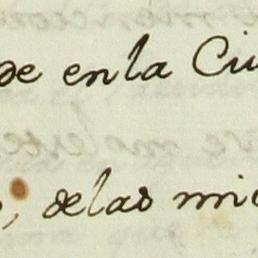 de en la Ciu
, de las mic